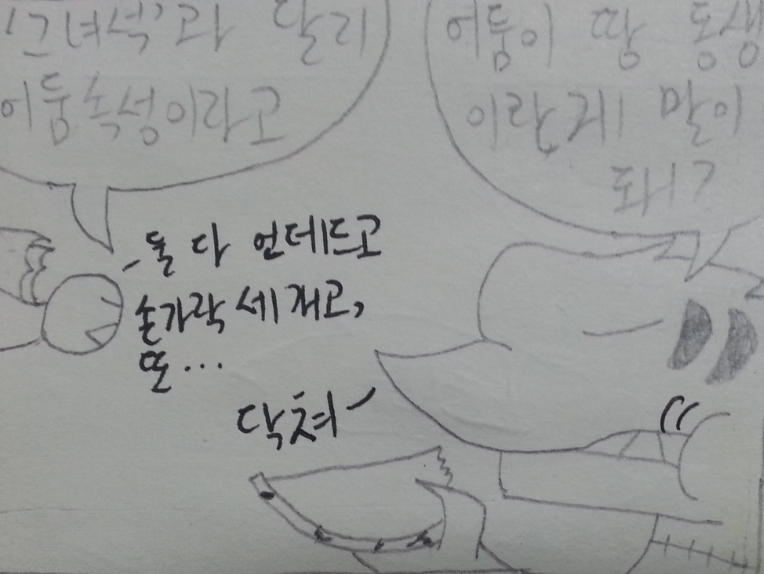 '그녀석'과 달리
어둠속성이라고
어둠이 땅 동생
이란게 말이
돼?
둘 다 언데드고
손가락 세 개고,
또...
닥쳐